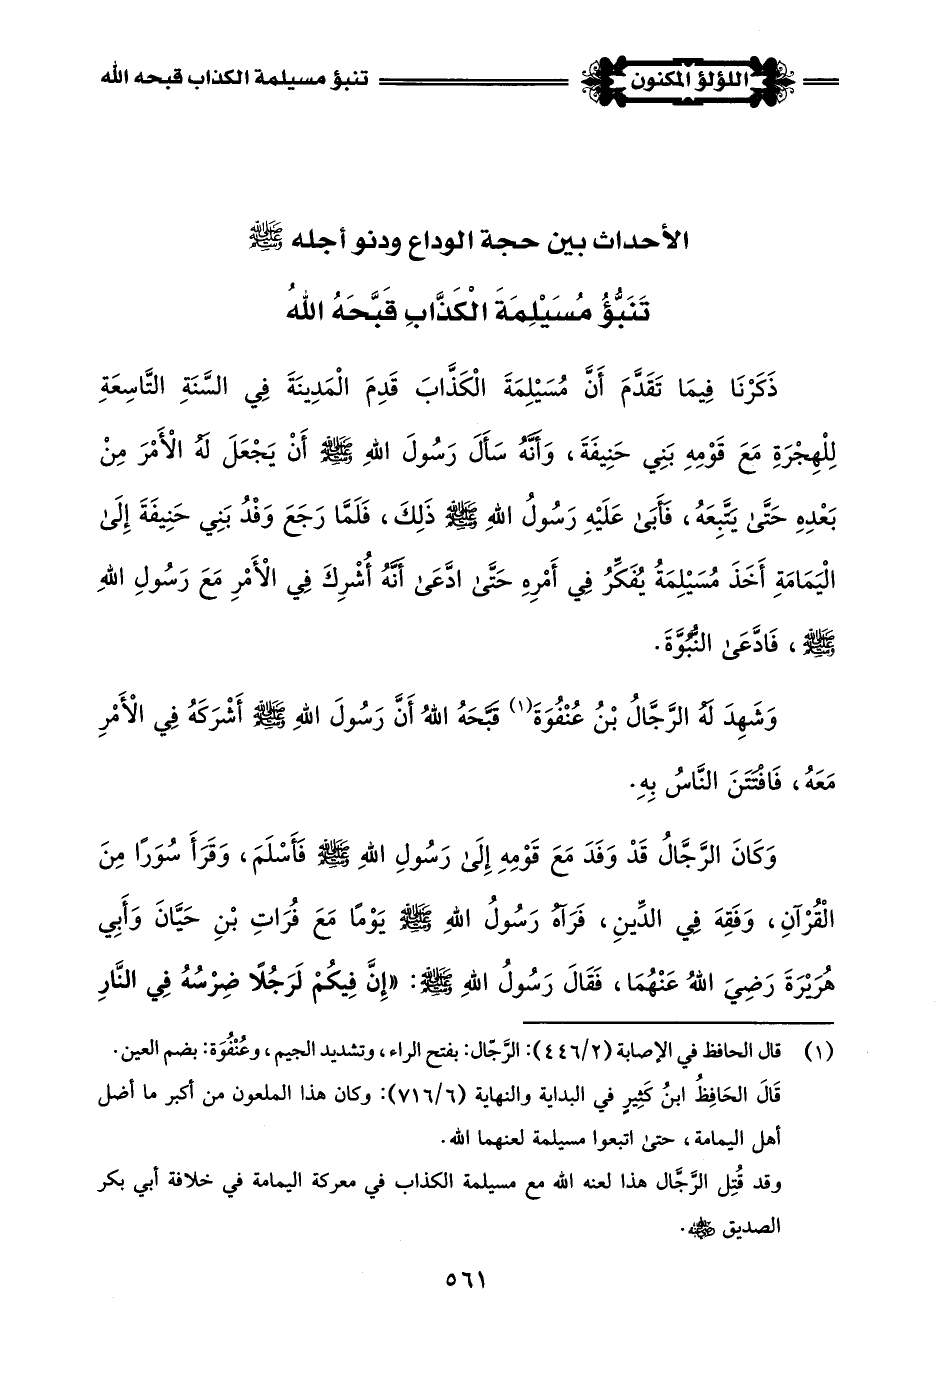 اللؤلؤ المكنون
تنبؤ مسيلمة الكذاب قبحه الله
الأحداث بين حجة الوداع ودنو أجله ﷺ
تَنَبُّؤُ مُسَيْلِمَةَ الْكَذَّابِ قَبَّحَهُ اللهُ
ذَكَرْنَا فِيمَا تَقَدَّمَ أَنَّ مُسَيْلِمَةَ الْكَذَّابَ قَدِمَ الْمَدِينَةَ فِي السَّنَةِ التَّاسِعَةِ
لِلْهِجْرَةِ مَعَ قَوْمِهِ بَنِي حَنِيفَةَ، وَأَنَّهُ سَأَلَ رَسُولَ اللهِ ﷺ أَنْ يَجْعَلَ لَهُ الْأَمْرَ مِنْ
بَعْدِهِ حَتَّىٰ يَتَّبِعَهُ، فَأَبَىٰ عَلَيْهِ رَسُولُ اللهِ ﷺ ذَلِكَ، فَلَمَّا رَجَعَ وَفْدُ بَنِي حَنِيفَةَ إِلَىٰ
الْيَمَامَةِ أَخَذَ مُسَيْلِمَةُ يُفَكِّرُ فِي أَمْرِهِ حَتَّىٰ ادَّعَىٰ أَنَّهُ أُشْرِكَ فِي الْأَمْرِ مَعَ رَسُولِ اللهِ
ﷺ، فَادَّعَىٰ النُّبُوَّةَ.
وَشَهِدَ لَهُ الرَّجَّالُ بْنُ عُنْفُوَةَ(١) قَبَّحَهُ اللهُ أَنَّ رَسُولَ اللهِ ﷺ أَشْرَكَهُ فِي الْأَمْرِ
مَعَهُ، فَافْتَتَنَ النَّاسُ بِهِ.
وَكَانَ الرَّجَّالُ قَدْ وَفَدَ مَعَ قَوْمِهِ إِلَىٰ رَسُولِ اللهِ ﷺ فَأَسْلَمَ، وَقَرَأَ سُوَرًا مِنَ
الْقُرْآنِ، وَفَقِهَ فِي الدِّينِ، فَرَآهُ رَسُولُ اللهِ ﷺ يَوْمًا مَعَ فُرَاتِ بْنِ حَيَّانَ وَأَبِي
هُرَيْرَةَ رَضِيَ اللهُ عَنْهُمَا، فَقَالَ رَسُولُ اللهِ ﷺ: «إِنَّ فِيكُمْ لَرَجُلًا ضِرْسُهُ فِي النَّارِ
(١) قال الحافظ في الإصابة (٤٤٦/٢): الرَّجّال: بفتح الراء، وتشديد الجيم، وعُنْفُوَة: بضم العين.
قَالَ الحَافِظُ ابنُ كَثِيرٍ في البداية والنهاية (٧١٦/٦): وكان هذا الملعون من أكبر ما أضل
أهل اليمامة، حتىٰ اتبعوا مسيلمة لعنهما الله.
وقد قُتِل الرَّجَّال هذا لعنه الله مع مسيلمة الكذاب في معركة اليمامة في خلافة أبي بكر
الصديق ﵁.
٥٦١